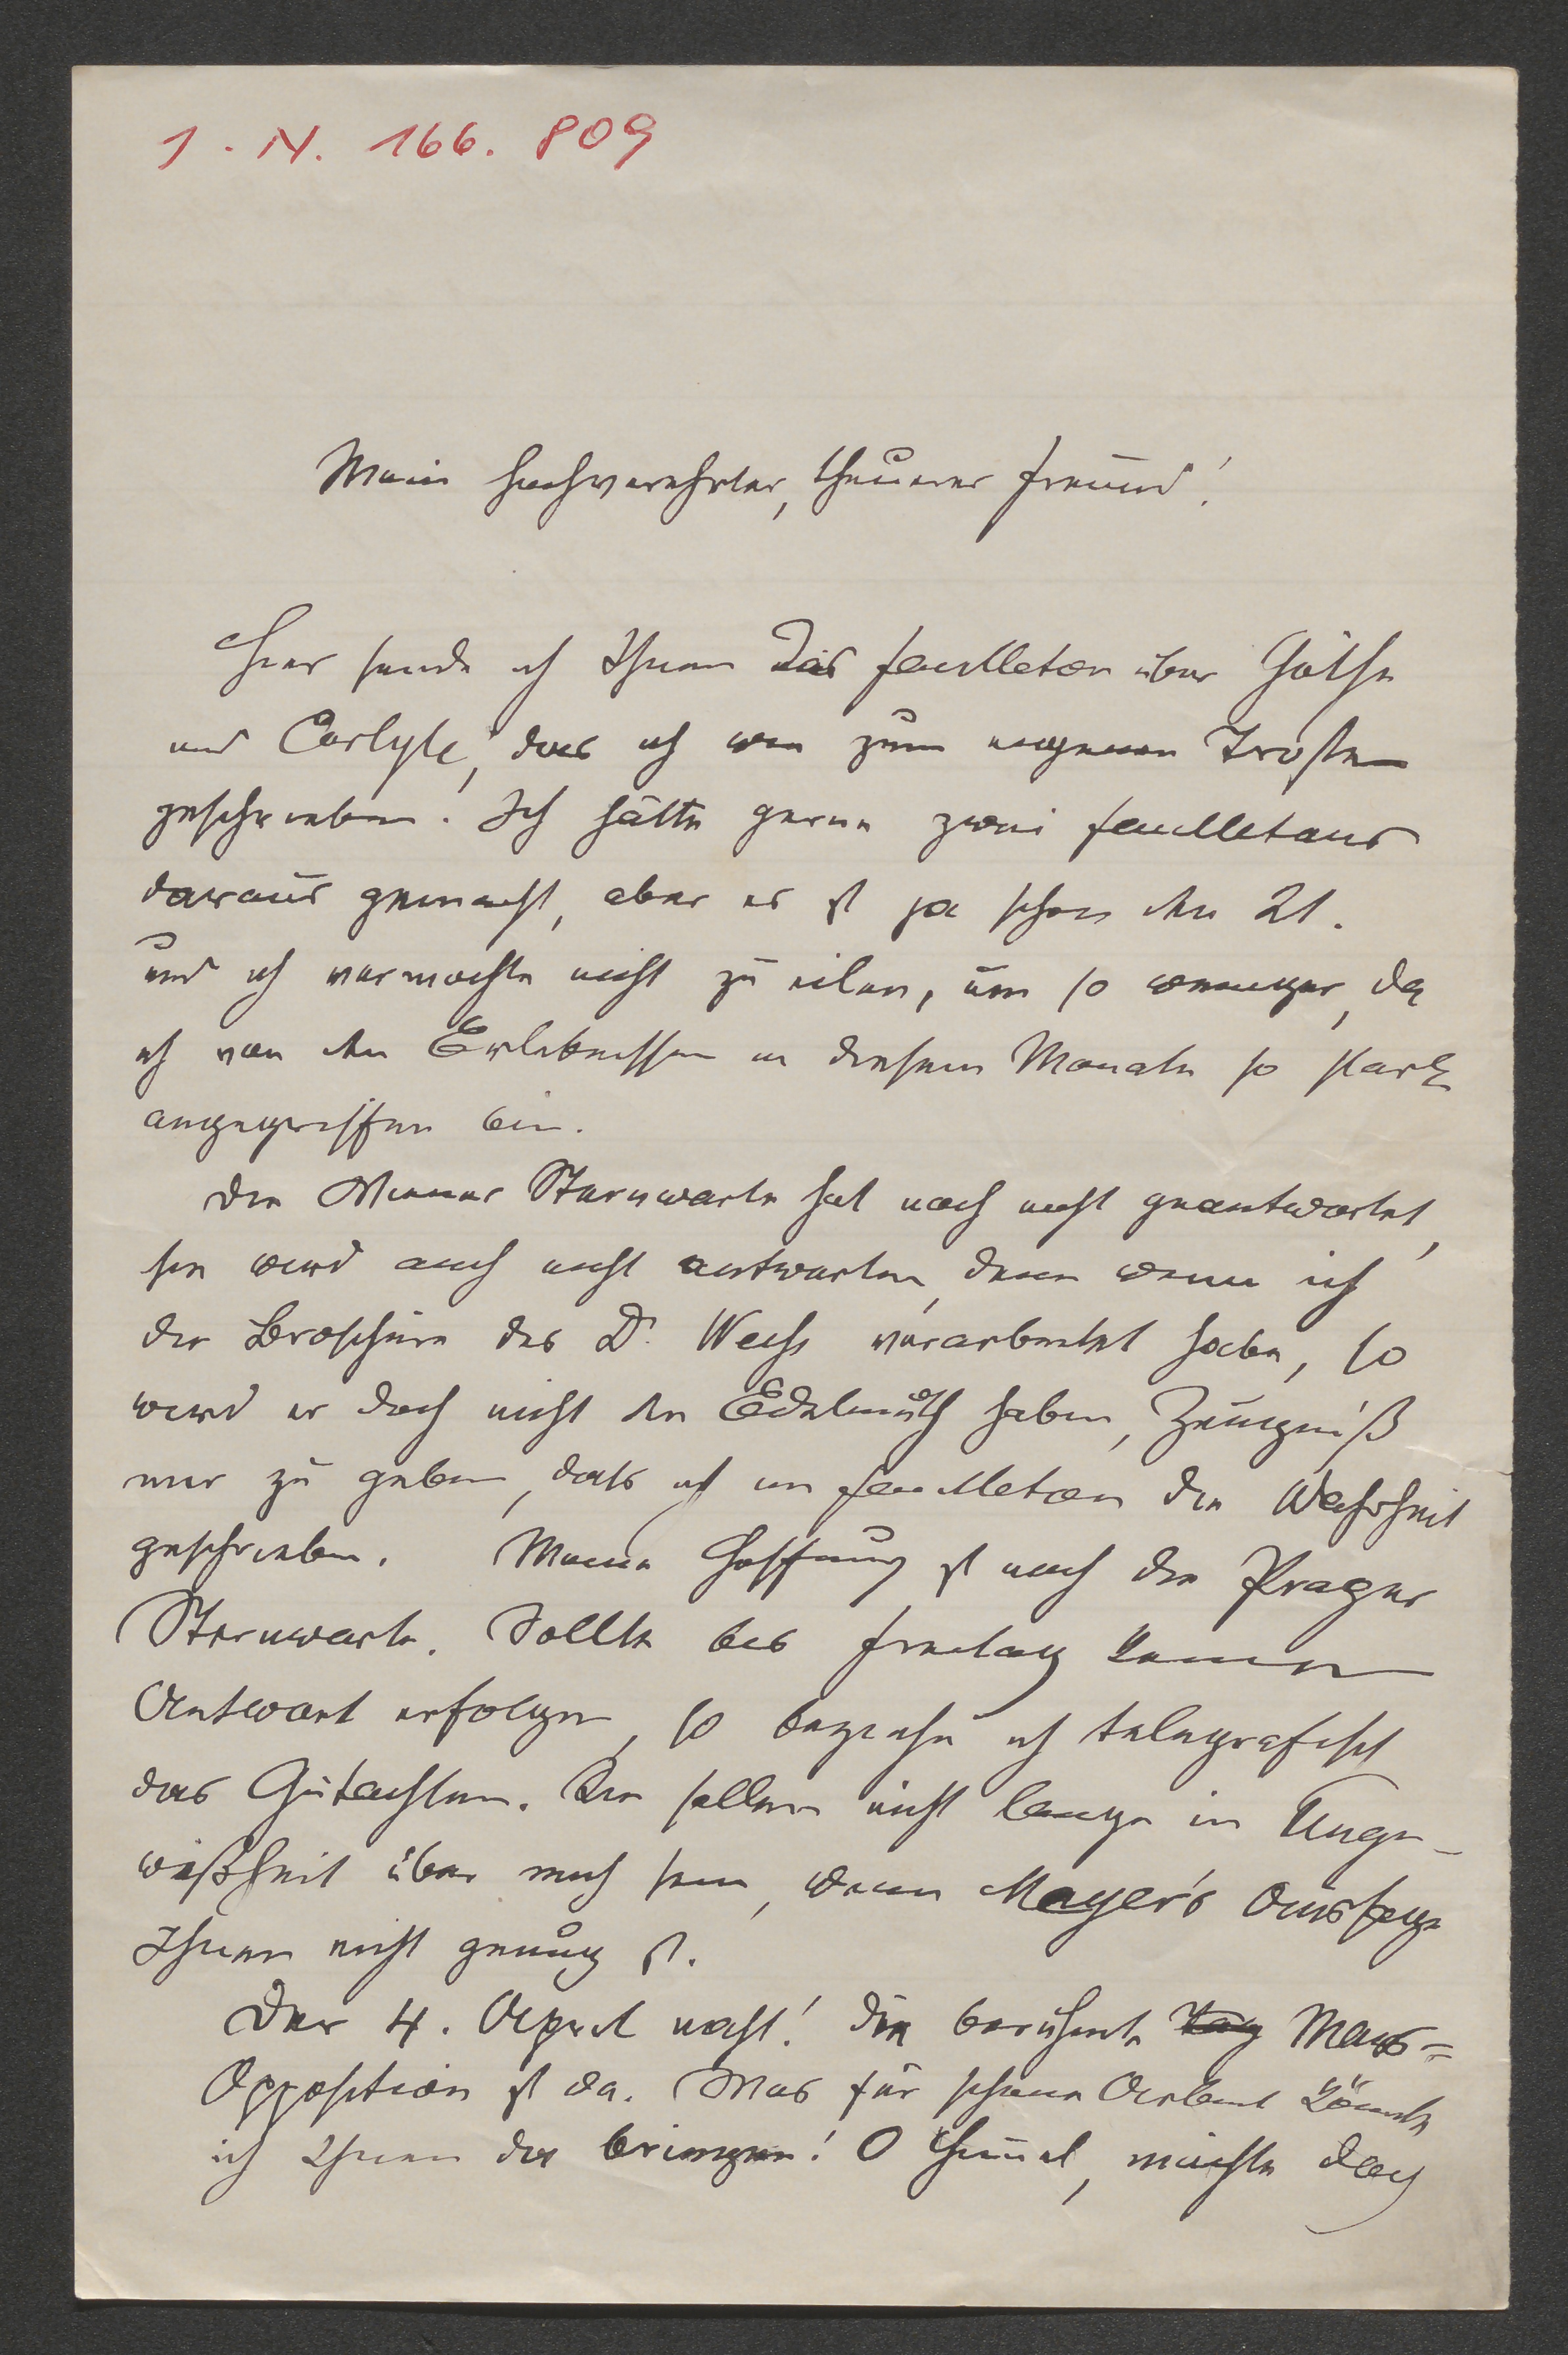 J. N. 166.809
Mein hochverehrter, theurer Freund!
Hier sende ich Ihnen das Feuilleton über Göthe
und Carlyle, das ich wie zum eigenen Troste
geschrieben. Ich hätte gerne zwei Feuilletons
daraus gemacht, aber es ist ja schon der 21.
und ich vermochte nicht zu eilen, um so weniger, da
ich von den Erlebnissen in diesem Monate so stark
angegriffen bin.
Die Wiener Sternwarte hat noch nicht geantwortet,
sie wird auch nicht antworten, denn wenn ich
die Broschüre des Dr. Weiß verarbeitet habe, so
wird er doch nicht den Edelmuth haben, Zeugniß
mir zu geben, daß ich im Feuilleton die Wahrheit
geschrieben. Meine Hoffnung ist noch die Prager
Sternwarte. Sollte bis Freitag keine
Antwort erfolgen, so beziehe ich telegrafisch
das Gutachten. Sie sollen nicht lange in Unge-
wißheit über mich sein, wenn Mayer's Aussage
Ihnen nicht genug ist.
Der 4. April naht! Die berühmte Tag Mars=
Opposition ist da. Was für schöne Arbeit könnte
ich Ihnen da bringen! O Himmel, möchte doch